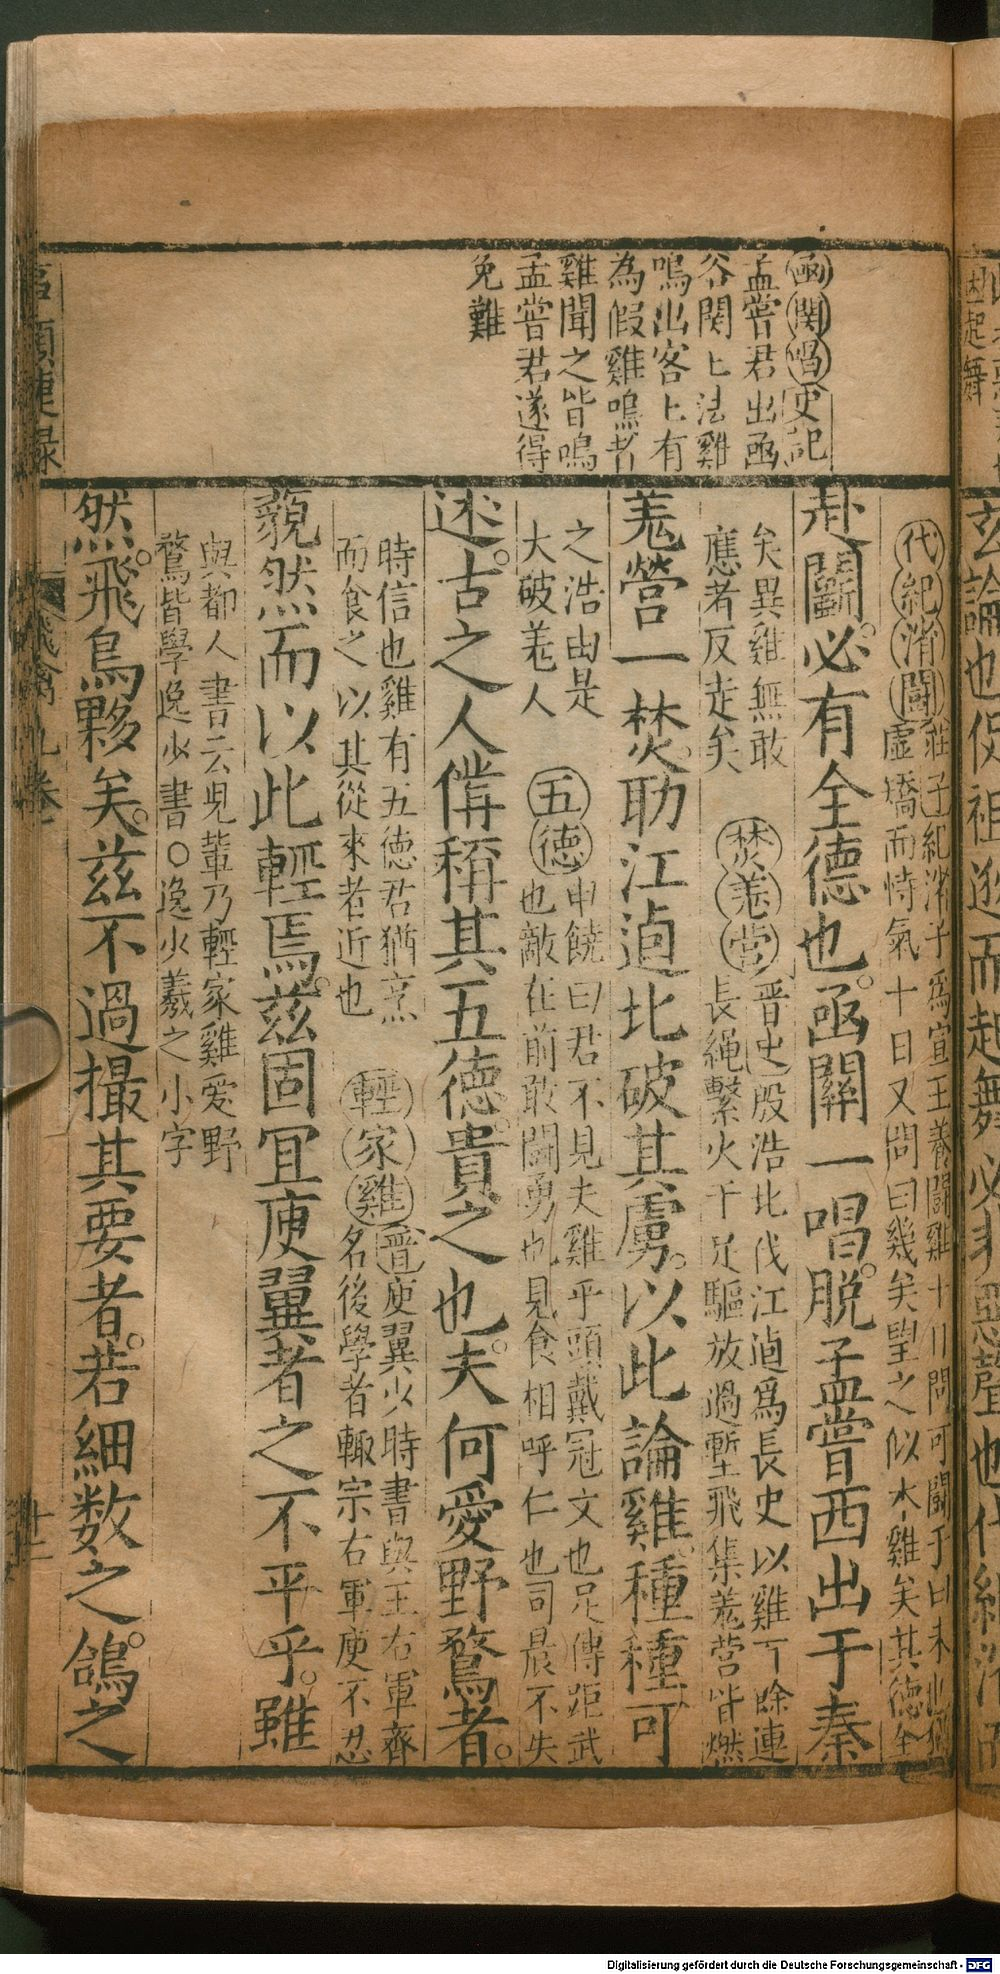 函関唱史記
孟嘗君出函
谷関上法雞
鳴出客上有
為假雞鳴者
雞聞之皆鳴
孟嘗君遂得
免難
代紀渻鬪莊子紀渻子為宣王養鬪雞十日問可鬪乎曰未也猶
虛憍而恃氣十日又問曰幾矣望之似木雞矣其德全
矣異雞無敢
應者反走矣
赴鬪必有全德也函關一唱脫孟嘗西出于秦
焚羗营晋史殷浩北伐江逌為長史以雞千餘連
長繩繫火于足驅放過塹飛集羗营皆燃
羗營一焚助江逌北破其虜以此論雞種種可
之浩由是
大破羗人
五德田饒曰君不見夫雞乎頭戴冠文也足傅距武
也敵在前敢鬪勇也見食相呼仁也司晨不失
述古之人偹稱其五德貴之也夫何愛野鶩者
時信也雞有五德君猶烹
而食之以其從來者近也
輕家雞晋庾翼少時書與王右軍齊
名後學者輙宗右軍庾不忍
藐然而以此輕焉茲固冝庾翼者之不平乎雖
與都人書云皃輩乃輕家雞爱野
鶩皆學逸少書○逸少羲之小字
然飛鳥夥矣茲不過撮其要者若細数之鴿之
飛禽九卷
廿二
因起舞
玄論也促祖逖而起舞必非惡聲也代紀渻而
Digitalisierung gefördert durch die Deutsche Forschungsgemeinschaft - DFG